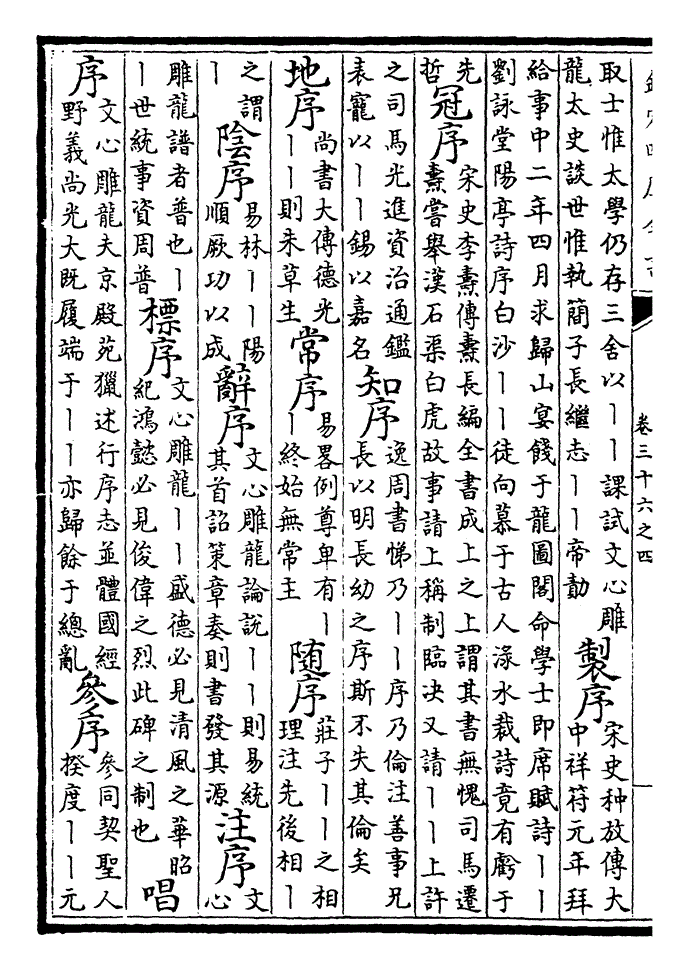 卷三十六之四
取士惟太學仍存三舍以丨丨課試文心雕
龍太史談世惟執簡子長繼志丨丨帝勣
製序
宋史种放傳大
中祥符元年拜
給事中二年四月求歸山宴餞于龍圖閣命學士即席賦詩丨丨
劉詠堂陽亭詩序白沙丨丨徒向慕于古人淥水裁詩竟有虧于
先
哲
冠序
宋史李燾傳燾長編全書成上之上謂其書無愧司馬遷
燾嘗舉漢石渠白虎故事請上稱制臨决又請丨丨上許
之司馬光進資治通鑑
表寵以丨丨錫以嘉名
知序
逸周書悌乃丨丨序乃倫注善事兄
長以明長幼之序斯不失其倫矣
地序
尚書大傳德光
丨丨則朱草生
常序
易畧例尊卑有丨
丨終始無常主
随序
莊子丨丨之相
理注先後相丨
之謂
丨
陰序
易林丨丨陽
順厥功以成
辭序
文心雕龍論説丨丨則易統
其首詔策章奏則書發其源
注序
文
心
雕龍譜者普也丨
丨世統事資周普
標序
文心雕龍丨丨盛德必見清風之華昭
紀鴻懿必見俊偉之烈此碑之制也
唱
序
文心雕龍夫京殿苑獵述行序志並體國經
野義尚光大既履端于丨丨亦歸餘于總亂
參序
參同契聖人
揆度丨丨元